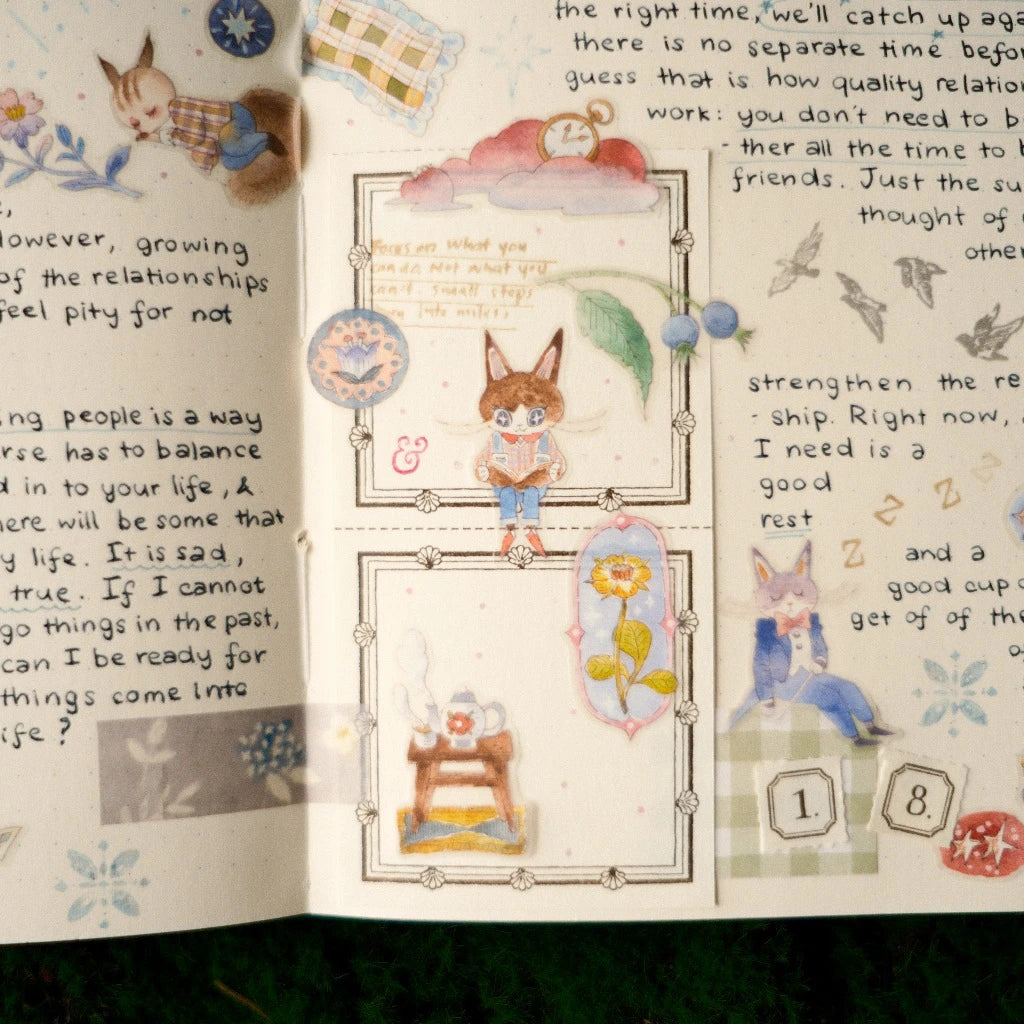 However, growing
of the relationships
feel pity for not
ing people is a way
rse has to balance
d in to your life, &
here will be some that
y life. It is sad,
true. If I cannot
go things in the past,
can I be ready for
things come into
ife?
Focus on what you
can do, not what you
can't. Small steps
turn into miles.
&
the right time, we'll catch up aga
there is no separate time befor
guess that is how quality relation
work: you don't need to b
- ther all the time to b
friends. Just the su
thought of
other
strengthen the re
- ship. Right now,
I need is a
good
rest
Z
Z
Z
Z
and a
good cup o
get of of the
1.
8.